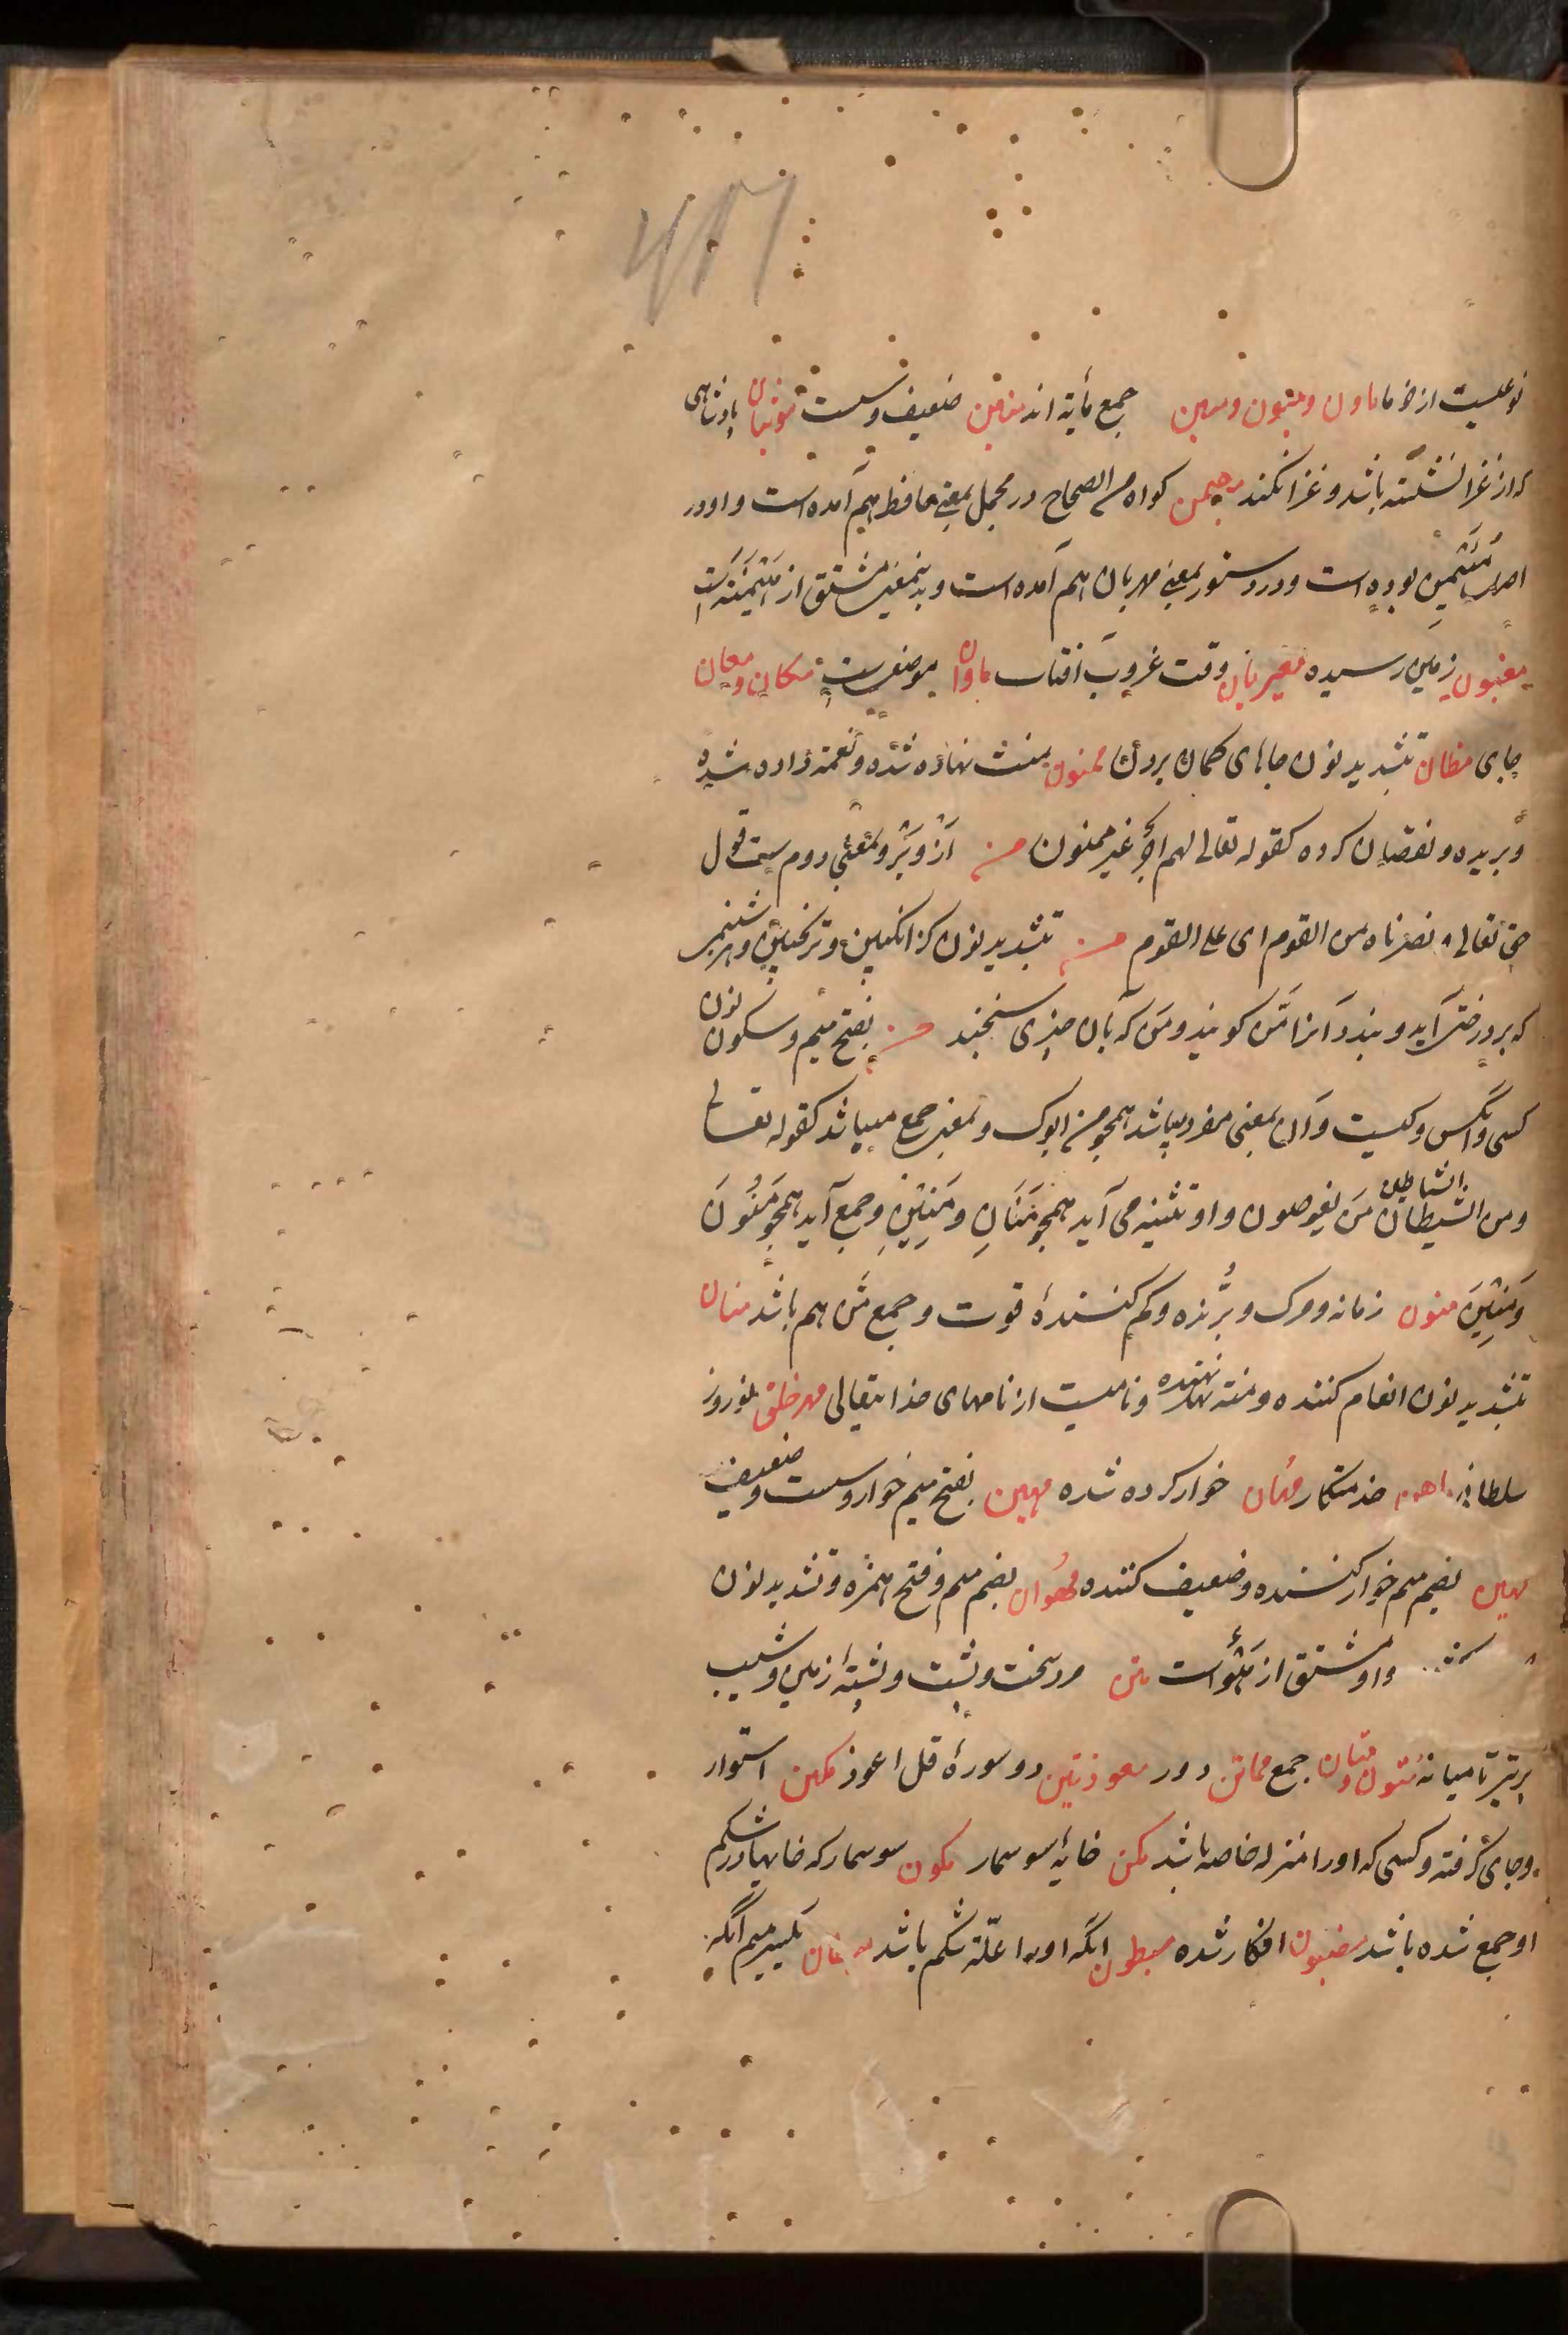 نوعیست از خرما ماون و مئون و مئین جمع مأیة اند منین ضعیف و سست موثبان پادشاهی
که از غزا نشسته باشد و غزا نکند مهیمن کواه من الصحاح در مجمل بمعنی محافظ هم آمده است و او در
اصل بوده است و در دستور بمعنی مهربان هم آمده است و بدینمعنی مشتق از است
مغبون زمین رسیده مغیربان وقت غروب افتاب ماوان موضعیست مکان و معان
جای مظان تشدید نون جاهای کمان بردن ممنون بمنت نهاده شده و نعمة داده شده
و بریده و نقصان کرده کقوله تعالی لهم اجر غیر ممنون من از و بر و بمعنی دوم ست قول
حق تعالی و نصرناه من القوم ای علی القوم من تشدید نون کز انکبین و ترنجبین و هر شبنم
که بر درخت آید و بندد آنرا مَنّ کویند و من که بآن چیزی سنجند من بفتح میم و سکون نون
کسی و آنکس و کیست و آن بمعنی مفرد میباشد همچو من ابوک و بمعنی جمع میباشد کقوله تعالی
ومن الشیطان الشیاطین مَن یغوصون و او تثنیه می آید همچو مَنَانِ و مَنَینِ و جمع آید همچو مَنُونَ
وَمَنِینَ منون زمانه و مرک و بُرّنده و کم کنندهٔ قوت و جمع مَنّ هم باشد منان
تشدید نون انعام کننده و منة نهنده و نامیست از نامهای خدایتعالی مهرجان نوروز
سلطانی ماهن خدمتکار مهان خوار کرده شده مهین بفتح میم خوار و سست و ضعیف
مهین بضم میم خوار کننده و ضعیف کننده بضم میم و فتح همزه و تشدید نون
و او مشتق از است متن مرد سخت و پشت و پشتهٔ زمین و شیب
پر تیر تا میانه متون و متان جمع مماتن دور معوذتین دو سورهٔ قل اعوذ مکین استوار
و جای گرفته و کسی که او را منزله خاصه باشد مکن خایهٔ سوسمار مکون سوسمار که خایها در شکم
او جمع شده باشد مضبون افکار شده مبطون انکه او را علّة شکم باشد بکسر میم آنکه